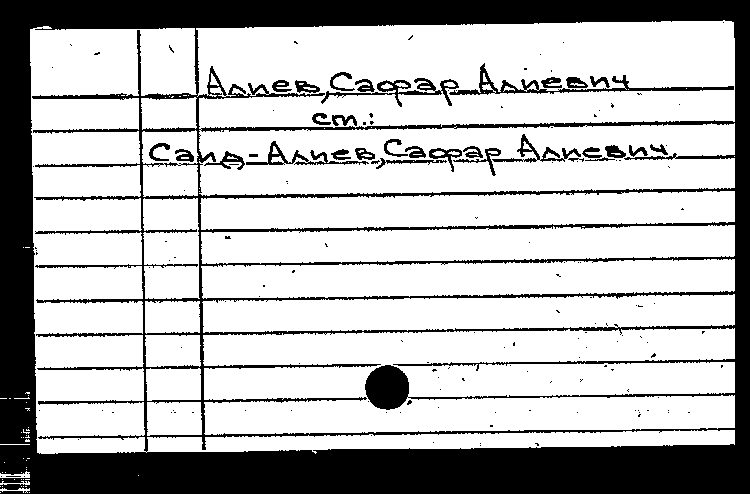 Алиев, Сафар Алиевич
ст.:
Саид-Алиев, Сафар Алиевич.